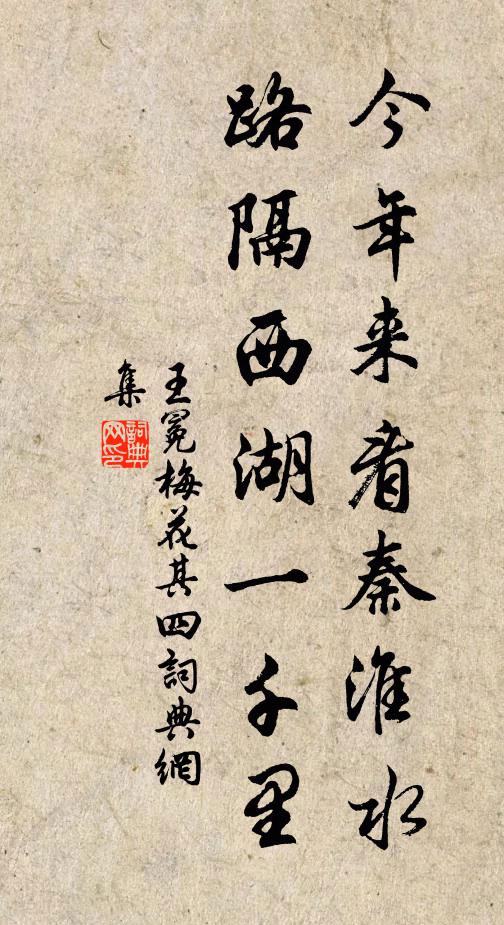 今年来看秦淮水
路隔西湖一千里
王冕梅花其四詞典網
集
詞典網印